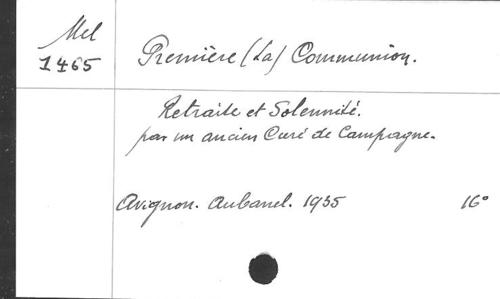 Mel
1465
Première (La) Communion.
Retraite et Solennité.
par un ancien Curé de Campagne.
Avignon. Aubanel. 1935 16°